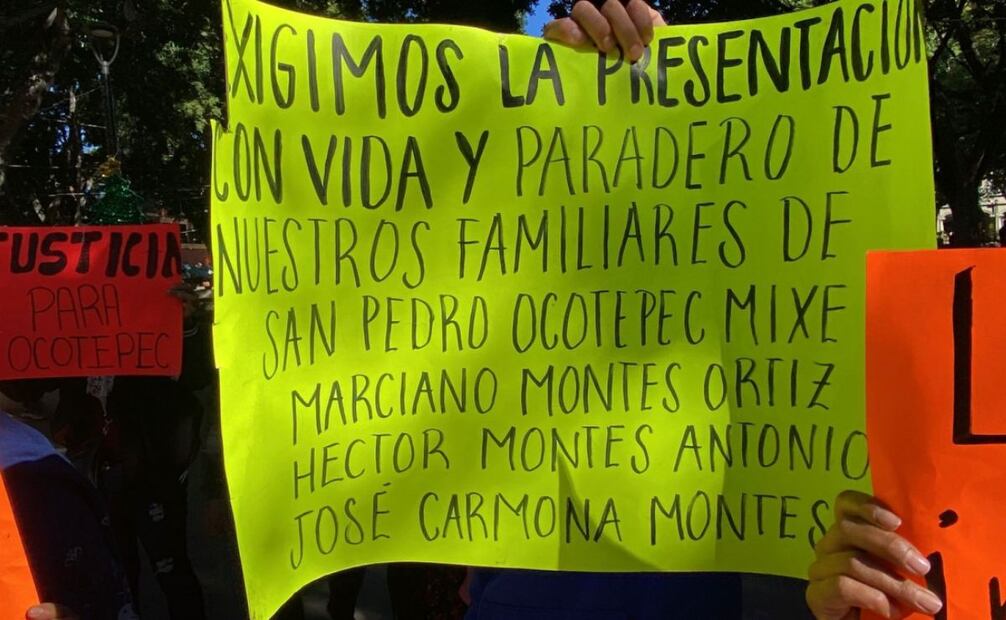 EXIGIMOS LA PRESENTACIÓN
CON VIDA Y PARADERO DE
NUESTROS FAMILIARES DE
SAN PEDRO OCOTEPEC MIXE
MARCIANO MONTES ORTIZ
HECTOR MONTES ANTONIO
JOSÉ CARMONA MONTES
JUSTICIA
PARA
OCOTEPEC